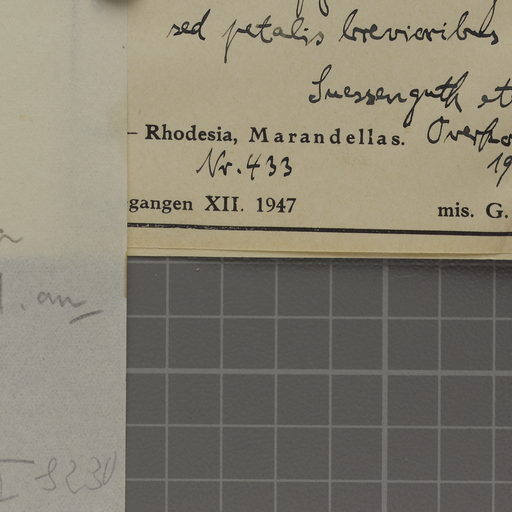 sed petalis brevioribus
Suessenguth et
– Rhodesia, Marandellas. Overko
Nr. 433 19
gangen XII. 1947 mis. G.
I 8230